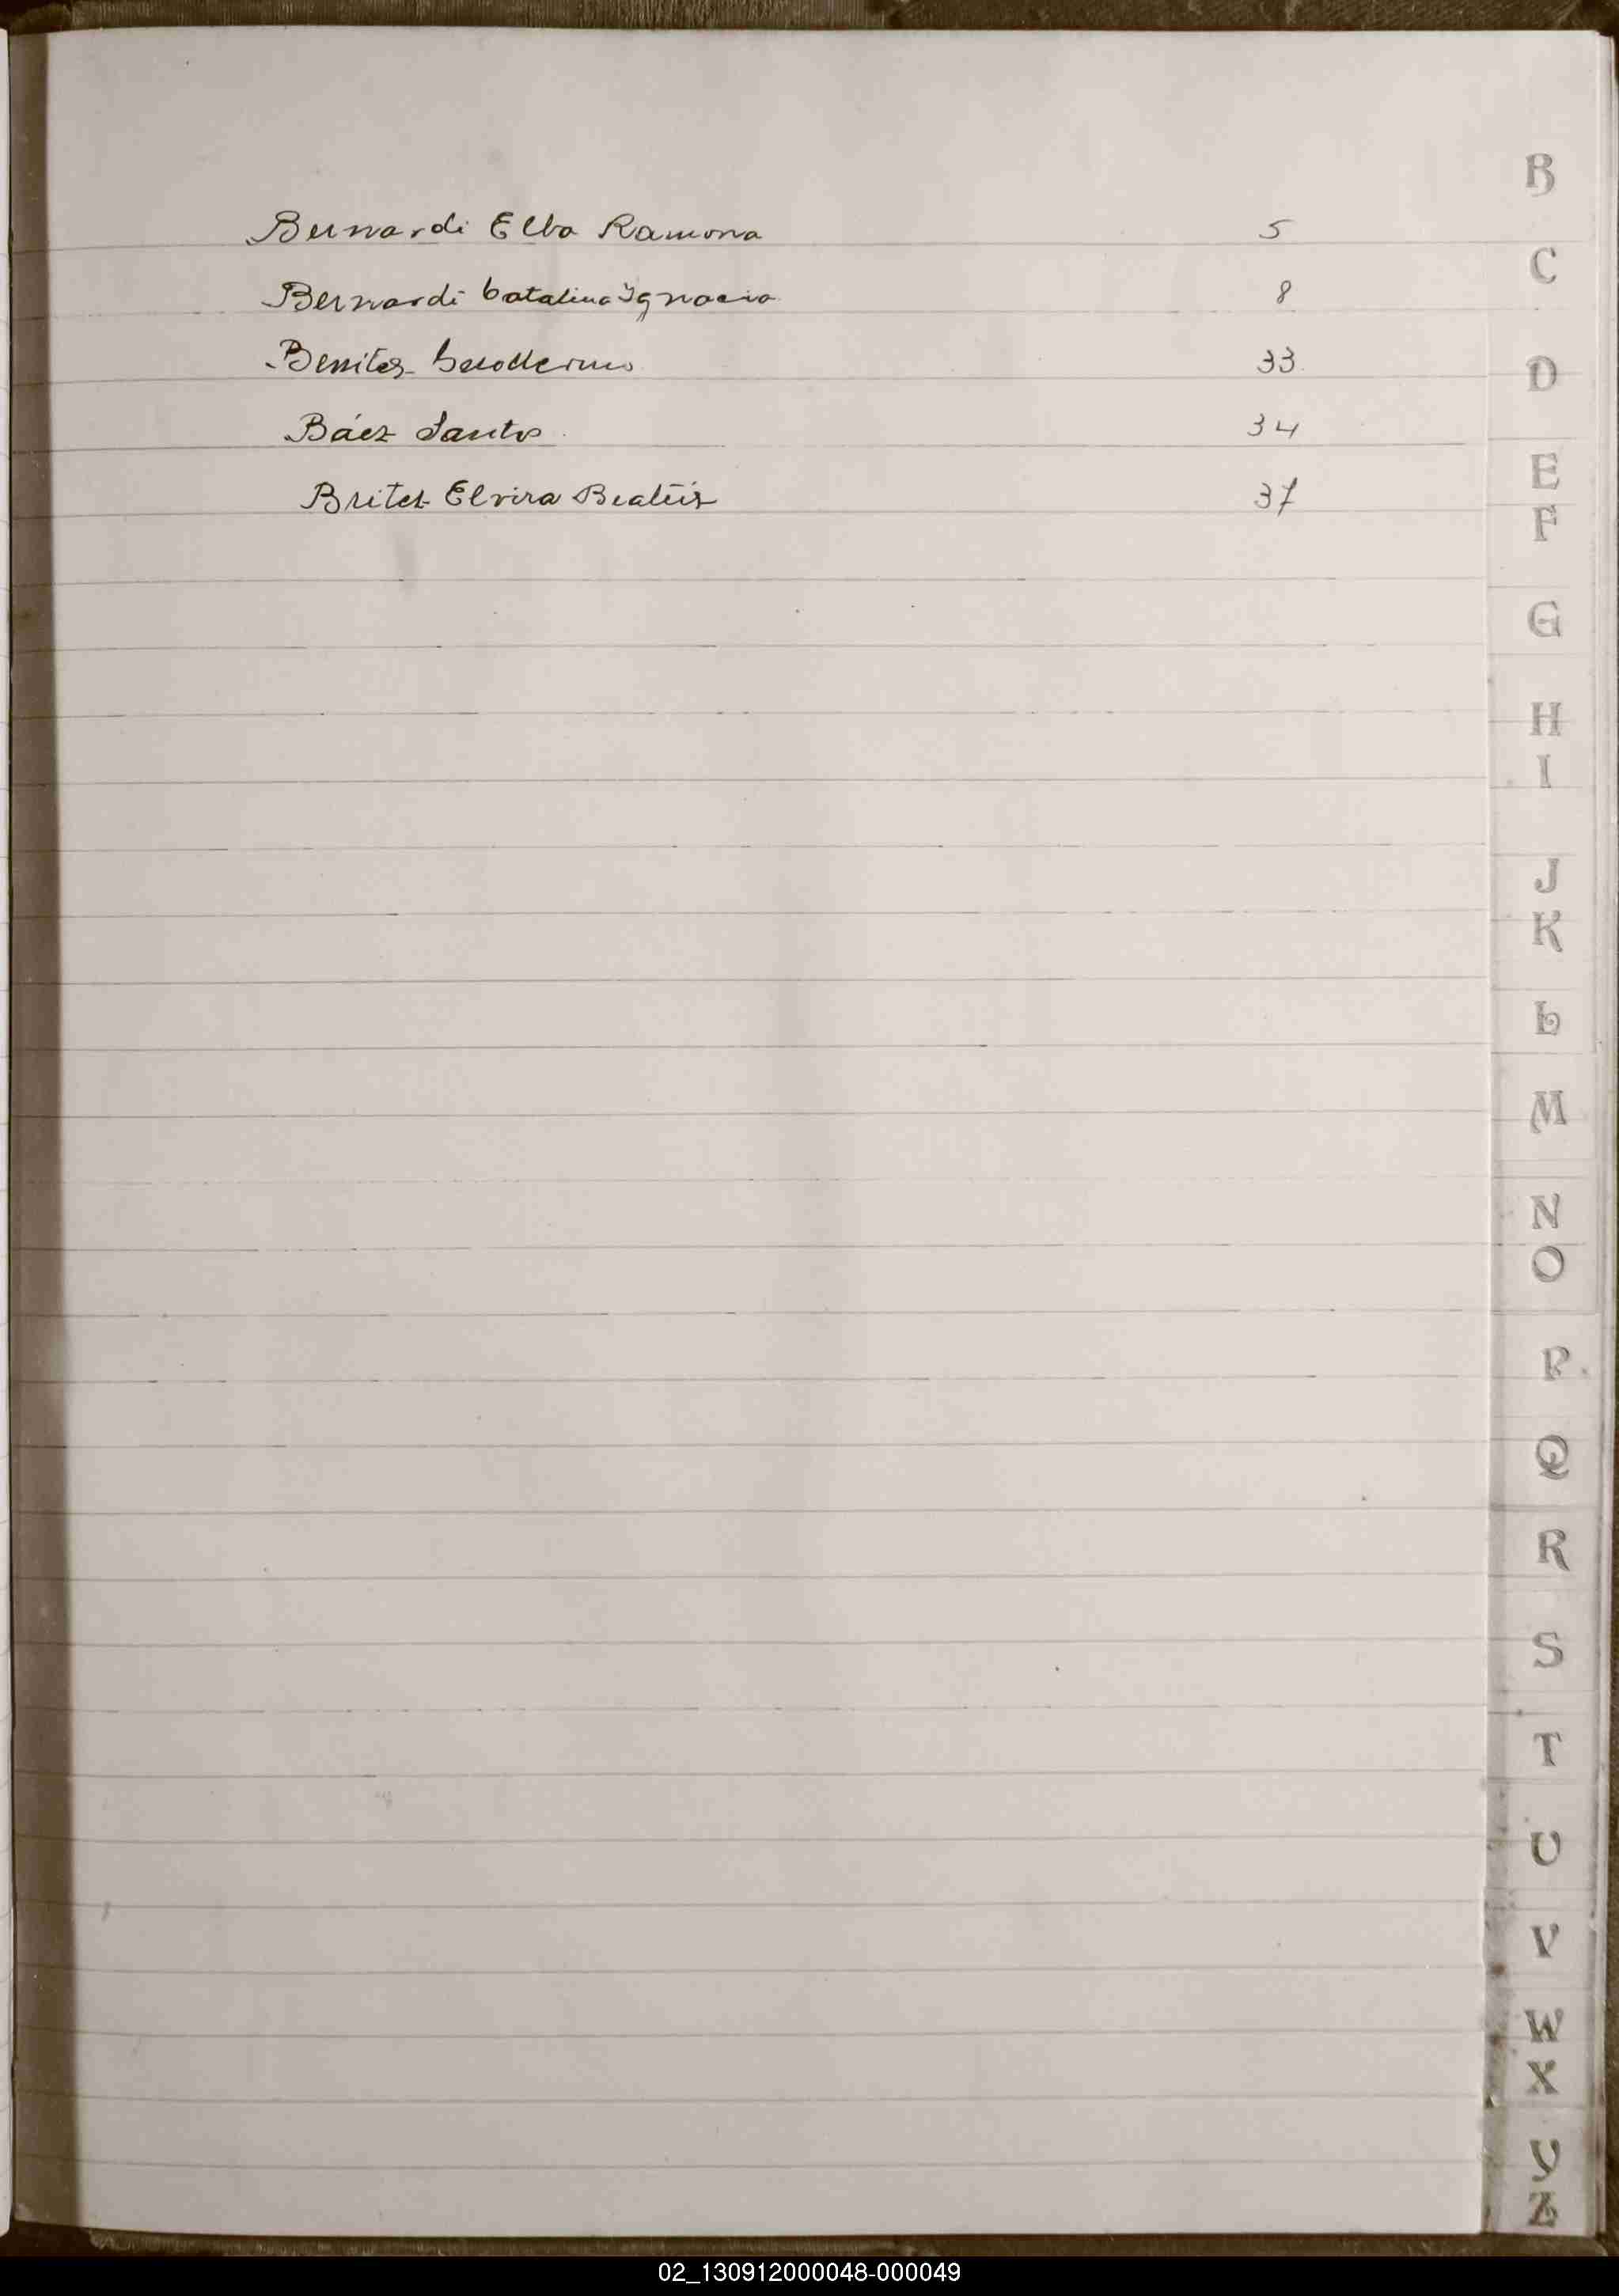 B
Bernardi Elba Ramona 5
C
Bernardi Catalina Ygnacia 8
Benites 33
D
Báez Santos 34
E
Britez Elvira Beatriz 37
F
G
H
I
J
K
L
M
N
O
P
Q
R
S
T
U
V
W
X
Y
Z
02_130912000048-000049